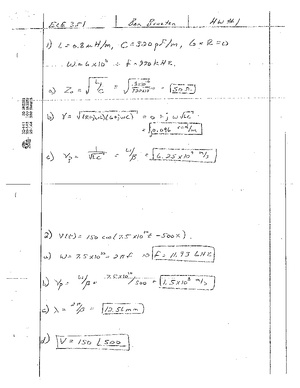 ECE 351 Ben Bouten HW #1
1) L = 0.8 mH/m, C = 320 pF/m, G = R = 0
a) Z₀ = √(L/C) = = 50 Ω
b) γ = √((R+jωL)(G+jωC)) = 0 + j ω√LC
= 0.096 rad/m
c) Vp = 1/√LC = ω/β = 6.25x10⁷ m/s
2) V(t) = 150 cos(7.5x10¹⁰t - 500x)
a) ω = 7.5x10¹⁰ = 2πf ⇒ f = 11.93 GHz
b) Vp = ω/β = 7.5x10¹⁰/500 = 1.5x10⁸ m/s
c) λ = 2π/β = 12.56 mm
d) V = 150 ∠500